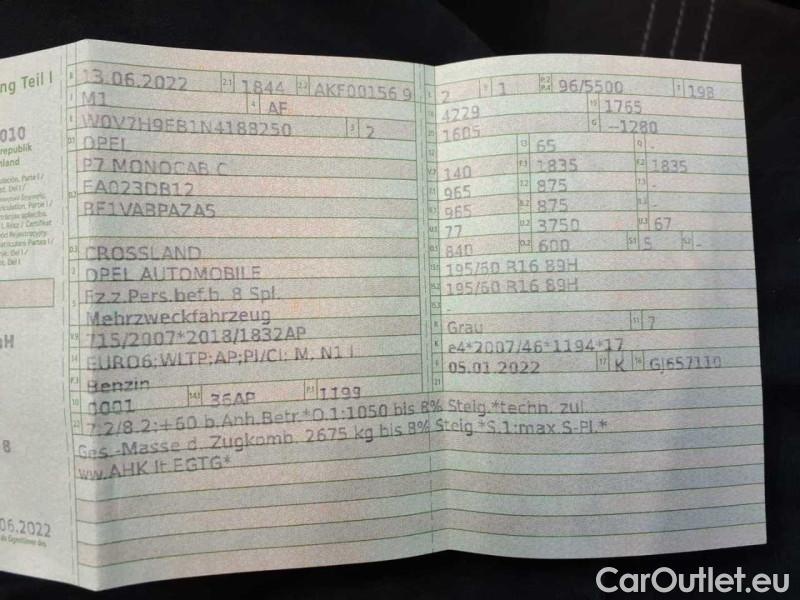 ng Teil I
010
republik
nland
06.2022
B 13.06.2022 2.1 1844 2.2 AKF00156 9
J M1 4 AF
E W0V7H9EB1N4188250 3 2
D.1 OPEL
P7 MONOCAB C
D.2 EA023DB12
BF1VABPAZA5
D.3 CROSSLAND
2 OPEL AUTOMOBILE
5 Fz.z.Pers.bef.b. 8 Spl.
Mehrzweckfahrzeug
V.9 715/2007*2018/1832AP
14 EURO6;WLTP;AP;PI/CI; M, N1 I
P.3 Benzin
10 0001 14.1 36AP P.1 1199
22 7.2/8.2:+60 b.Anh.Betr*O.1:1050 bis 8% Steig.*techn. zul.
Ges.-Masse d. Zugkomb. 2675 kg bis 8% Steig *S.1:max.S-Pl.*
ww.AHK lt.EGTG*
L 2 9 1 P.2 P.4 96/5500 T 198
18 4229 19 1765
20 1605 G —1280
12 - 13 65 Q -
V.7 140 F.1 1835 F.2 1835
7.1 965 7.2 875 7.3 -
8.1 965 8.2 875 8.3 -
U.1 77 U.2 3750 U.3 67
O.1 840 O.2 600 S.1 5 S.2 -
15.1 195/60 R16 89H
15.2 195/60 R16 89H
15.3 -
R Grau 11 7
K e4*2007/46*1194*17
6 05.01.2022 17 K 16 GJ657110
21
CarOutlet.eu